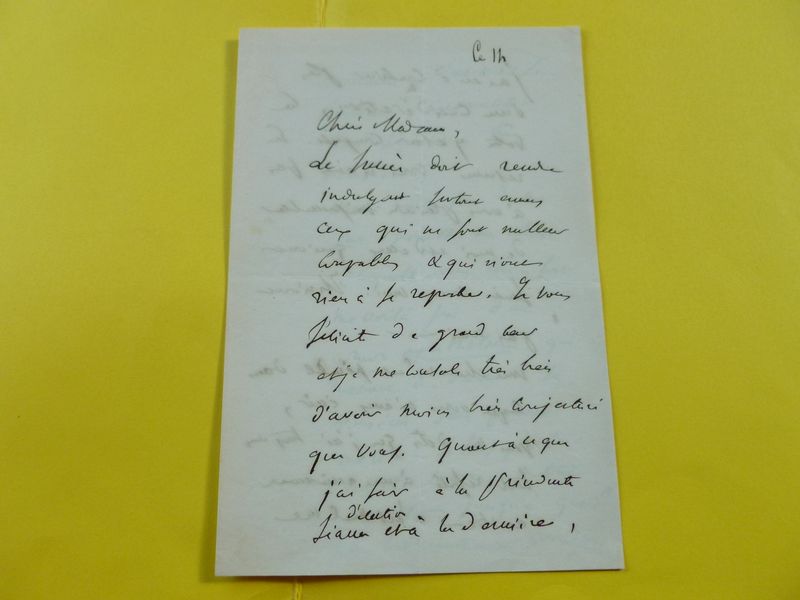 Ce 14
Chère Madame,
Le succès doit rendre
indulgent surtout envers
ceux qui ne sont nullement
coupables & qui n'ont
rien à se reprocher. Je vous
félicite de grand cœur
et je me console très bien
d'avoir moins bien conjecturé
que vous. Quant à ce que
j'ai fait à la précédente
d'élection
et à la dernière,